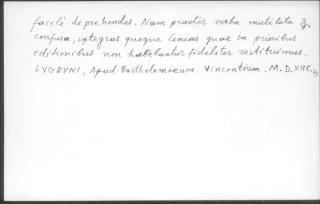 facilè deprehendes. Nam praeter verba mutilata &
confusa, integras quoque lineas quae in prioribus
editionibus non habebantur fideliter restituimus.
LVGDVNI, Apud Bartholomaeum Vincentium. M.D.XIIC.